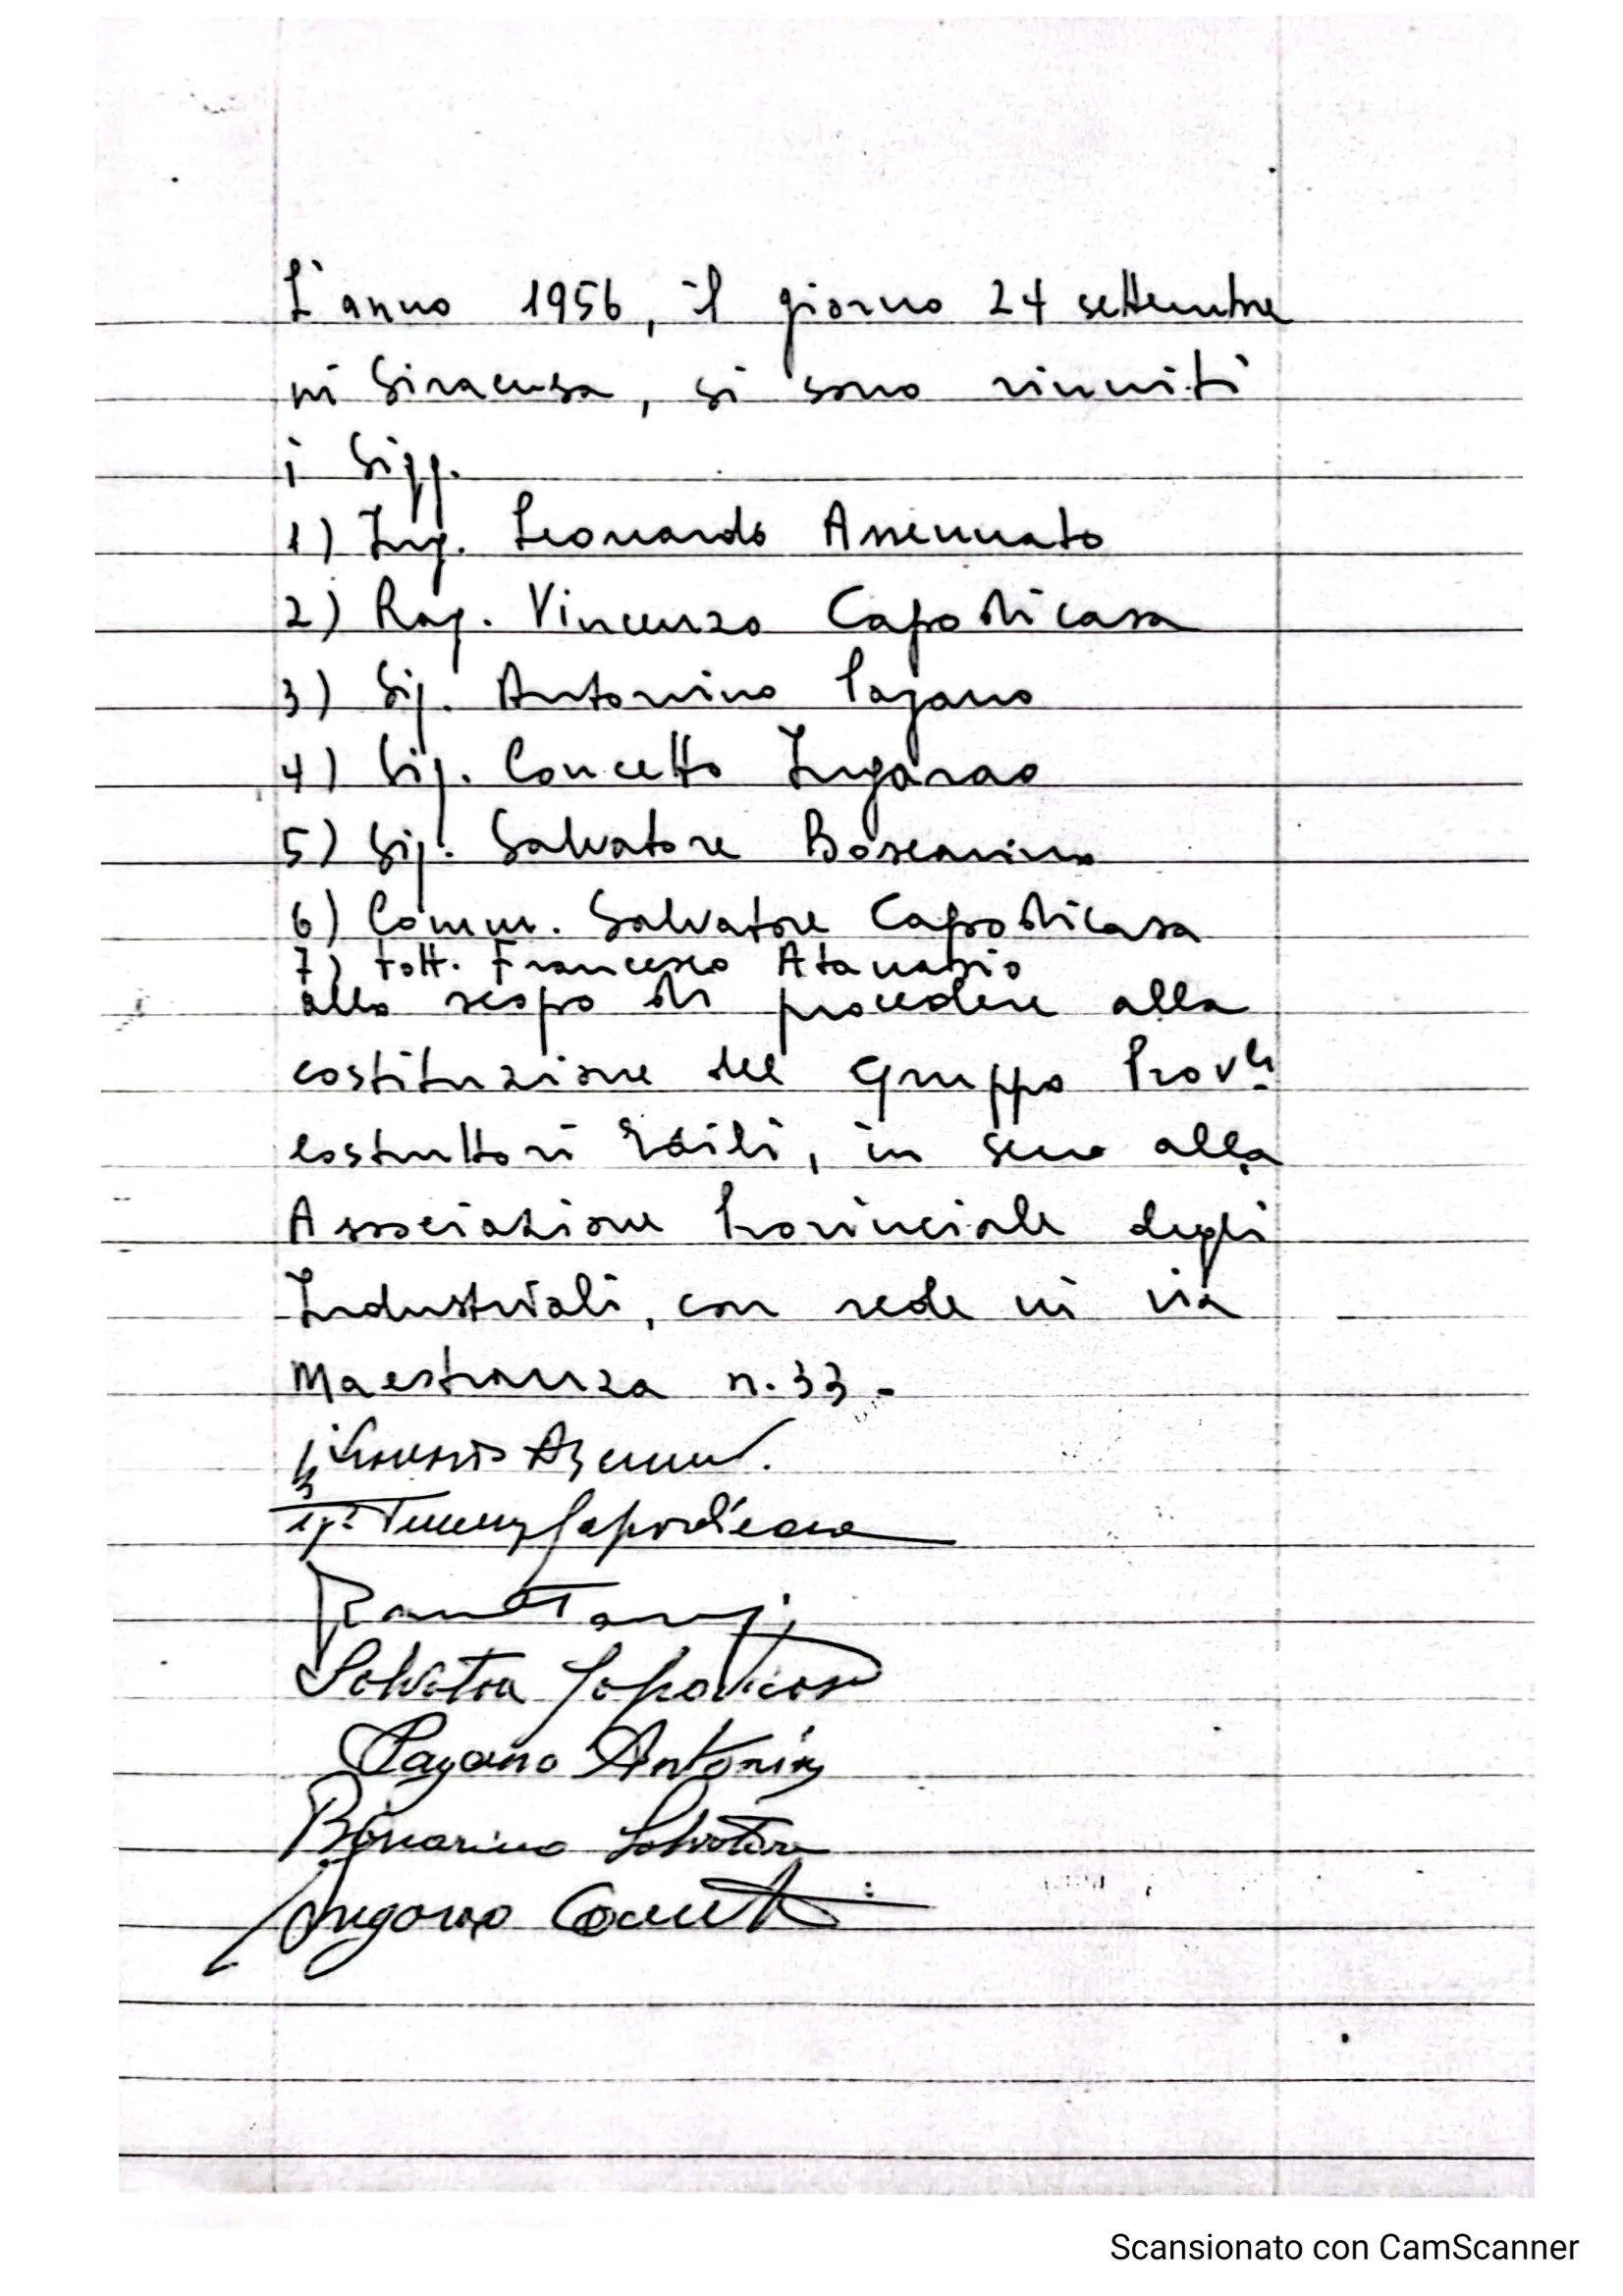 L'anno 1956, il giorno 24 settembre
in Siracusa, si sono riuniti
i Sigg.
1) Ing. Leonardo Assennato
2) Rag. Vincenzo Capodicasa
3) Sig. Antonino Pagano
4) Sig. Concetto Ingarao
5) Sig. Salvatore Boscarino
6) Comm. Salvatore Capodicasa
7) Dott. Francesco Atanasio
allo scopo di procedere alla
costituzione del Gruppo Prov.le
Costruttori Edili, in seno alla
Associazione Provinciale degli
Industriali, con sede in via
Maestranza n. 33 -
Capodicasa
Salvatore Capodicasa
Pagano Antonino
Boscarino Salvatore
Ingarao Concetto
Scansionato con CamScanner